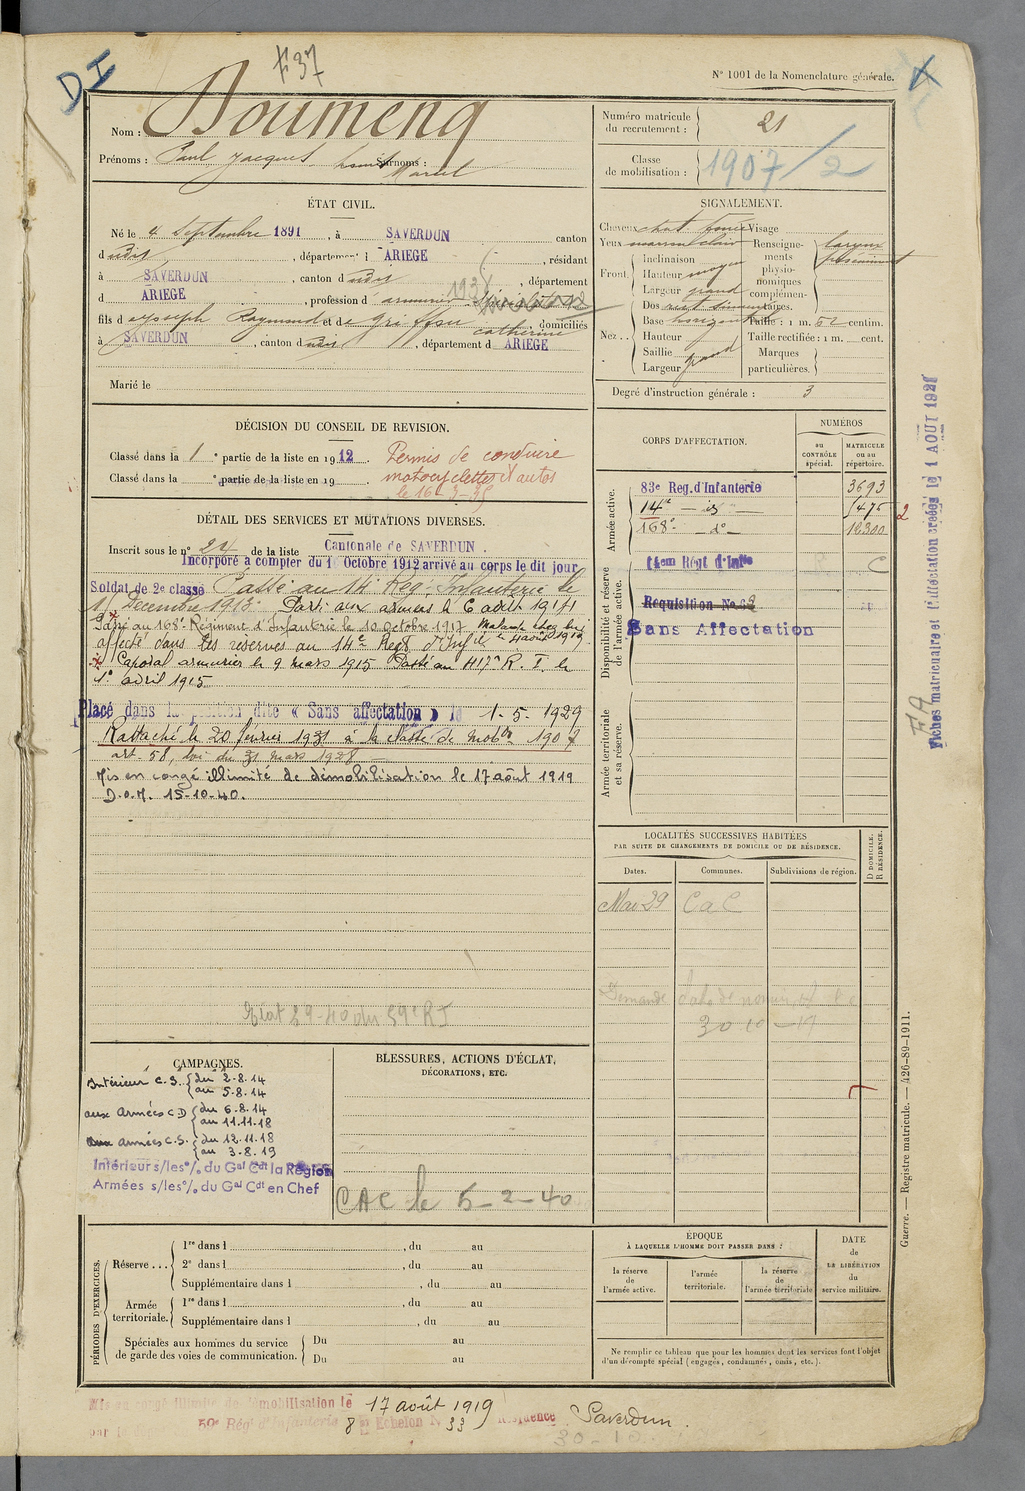 DI
F37
N° 1001 de la Nomenclature générale.
Nom : Doumenq
Prénoms : Paul Jacques Surnoms :
Marcel
Numéro matricule du recrutement : 21
Classe de mobilisation : 1907/2
ÉTAT CIVIL.
Né le 4 Septembre 1891, à SAVERDUN canton
d udit, département d ARIEGE, résidant
à SAVERDUN, canton d udit, département
d ARIEGE, profession d armurier
fils d e Joseph Raymond et d e Griffou Catherine, domiciliés
à SAVERDUN, canton d udit, département d ARIEGE
Marié le
SIGNALEMENT.
Cheveux chat. foncé Visage
Yeux marron clair
Front. Inclinaison
Hauteur moyen
Largeur grand
Nez.. Dos
Base horizontale
Hauteur
Saillie grand
Largeur
Renseignements physionomiques complémentaires.
Taille : 1 m. 52 centim.
Taille rectifiée : 1 m. cent.
Marques particulières.
Degré d'instruction générale : 3
DÉCISION DU CONSEIL DE REVISION.
Classé dans la 1e partie de la liste en 1912.
Classé dans la e partie de la liste en 19 .
Permis de conduire
motocyclettes & autos
le 16-3-35
DÉTAIL DES SERVICES ET MUTATIONS DIVERSES.
Inscrit sous le n° 24 de la liste Cantonale de SAVERDUN.
Incorporé à compter du 1 Octobre 1912 arrivé au corps le dit jour
Soldat de 2e classe Passé au 14e Rég. Infanterie le
1 Décembre 1913. Parti aux armées le 6 août 1914
Passé au 168e Régiment d'Infanterie le 10 Octobre 1917
affecté dans les réserves au 14e Régt d'Inf.
Caporal armurier le 9 mars 1915 Passé au 417e R. I. le
1er avril 1915
Placé dans la position dite « Sans affectation » le 1-5-1929
Rattaché le 20 février 1931 à la classe de mobon 1907
art. 58, loi du 31 mars 1928
Mis en congé illimité de démobilisation le 17 août 1919
D.O.M. 15-10-40.
CORPS D'AFFECTATION.
NUMÉROS
au CONTRÔLE spécial.
MATRICULE ou au répertoire.
Armée active.
83e Reg. d'Infanterie 3693
14e — do — 1475
168e — do 12300
Disponibilité et réserve de l'armée active.
14em Régt d'Infie
Requisition No
Sans Affectation
Armée territoriale et sa réserve.
FA
Fiches matriculaire et d'affectation créées le 1 AOUT 1928
LOCALITÉS SUCCESSIVES HABITÉES
PAR SUITE DE CHANGEMENTS DE DOMICILE OU DE RÉSIDENCE.
Dates.
Communes.
Subdivisions de région.
D DOMICILE. R RÉSIDENCE.
Mai 29 CaC
Demande
CAMPAGNES.
Intérieur C.S. du 2-8-14
au 5-8-14
aux Armées C D du 6-8-14
au 11-11-18
aux Armées C.S. du 12-11-18
au 3-8-19
Intérieur s/les o/o du Gal Cdt la Région
Armées s/les o/o du Gal Cdt en Chef
BLESSURES, ACTIONS D'ÉCLAT,
DÉCORATIONS, ETC.
CAC le 5-2-40
PÉRIODES D'EXERCICES.
Réserve ... 1re dans l , du au
2e dans l , du au
Supplémentaire dans l , du au
Armée territoriale. 1re dans l , du au
Supplémentaire dans l , du au
Spéciales aux hommes du service
de garde des voies de communication. Du au
Du au
ÉPOQUE
À LAQUELLE L'HOMME DOIT PASSER DANS :
la réserve de l'armée active.
l'armée territoriale.
la réserve de l'armée territoriale
DATE de LA LIBÉRATION du service militaire.
Ne remplir ce tableau que pour les hommes dont les services font l'objet
d'un décompte spécial (engagés, condamnés, omis, etc.).
Guerre. — Registre matricule. — 426-89-1911.
Mis en congé illimité de démobilisation le 17 août 1919
59e Rég. d'Infanterie 8 Echelon N 33 Résidence Saverdun.